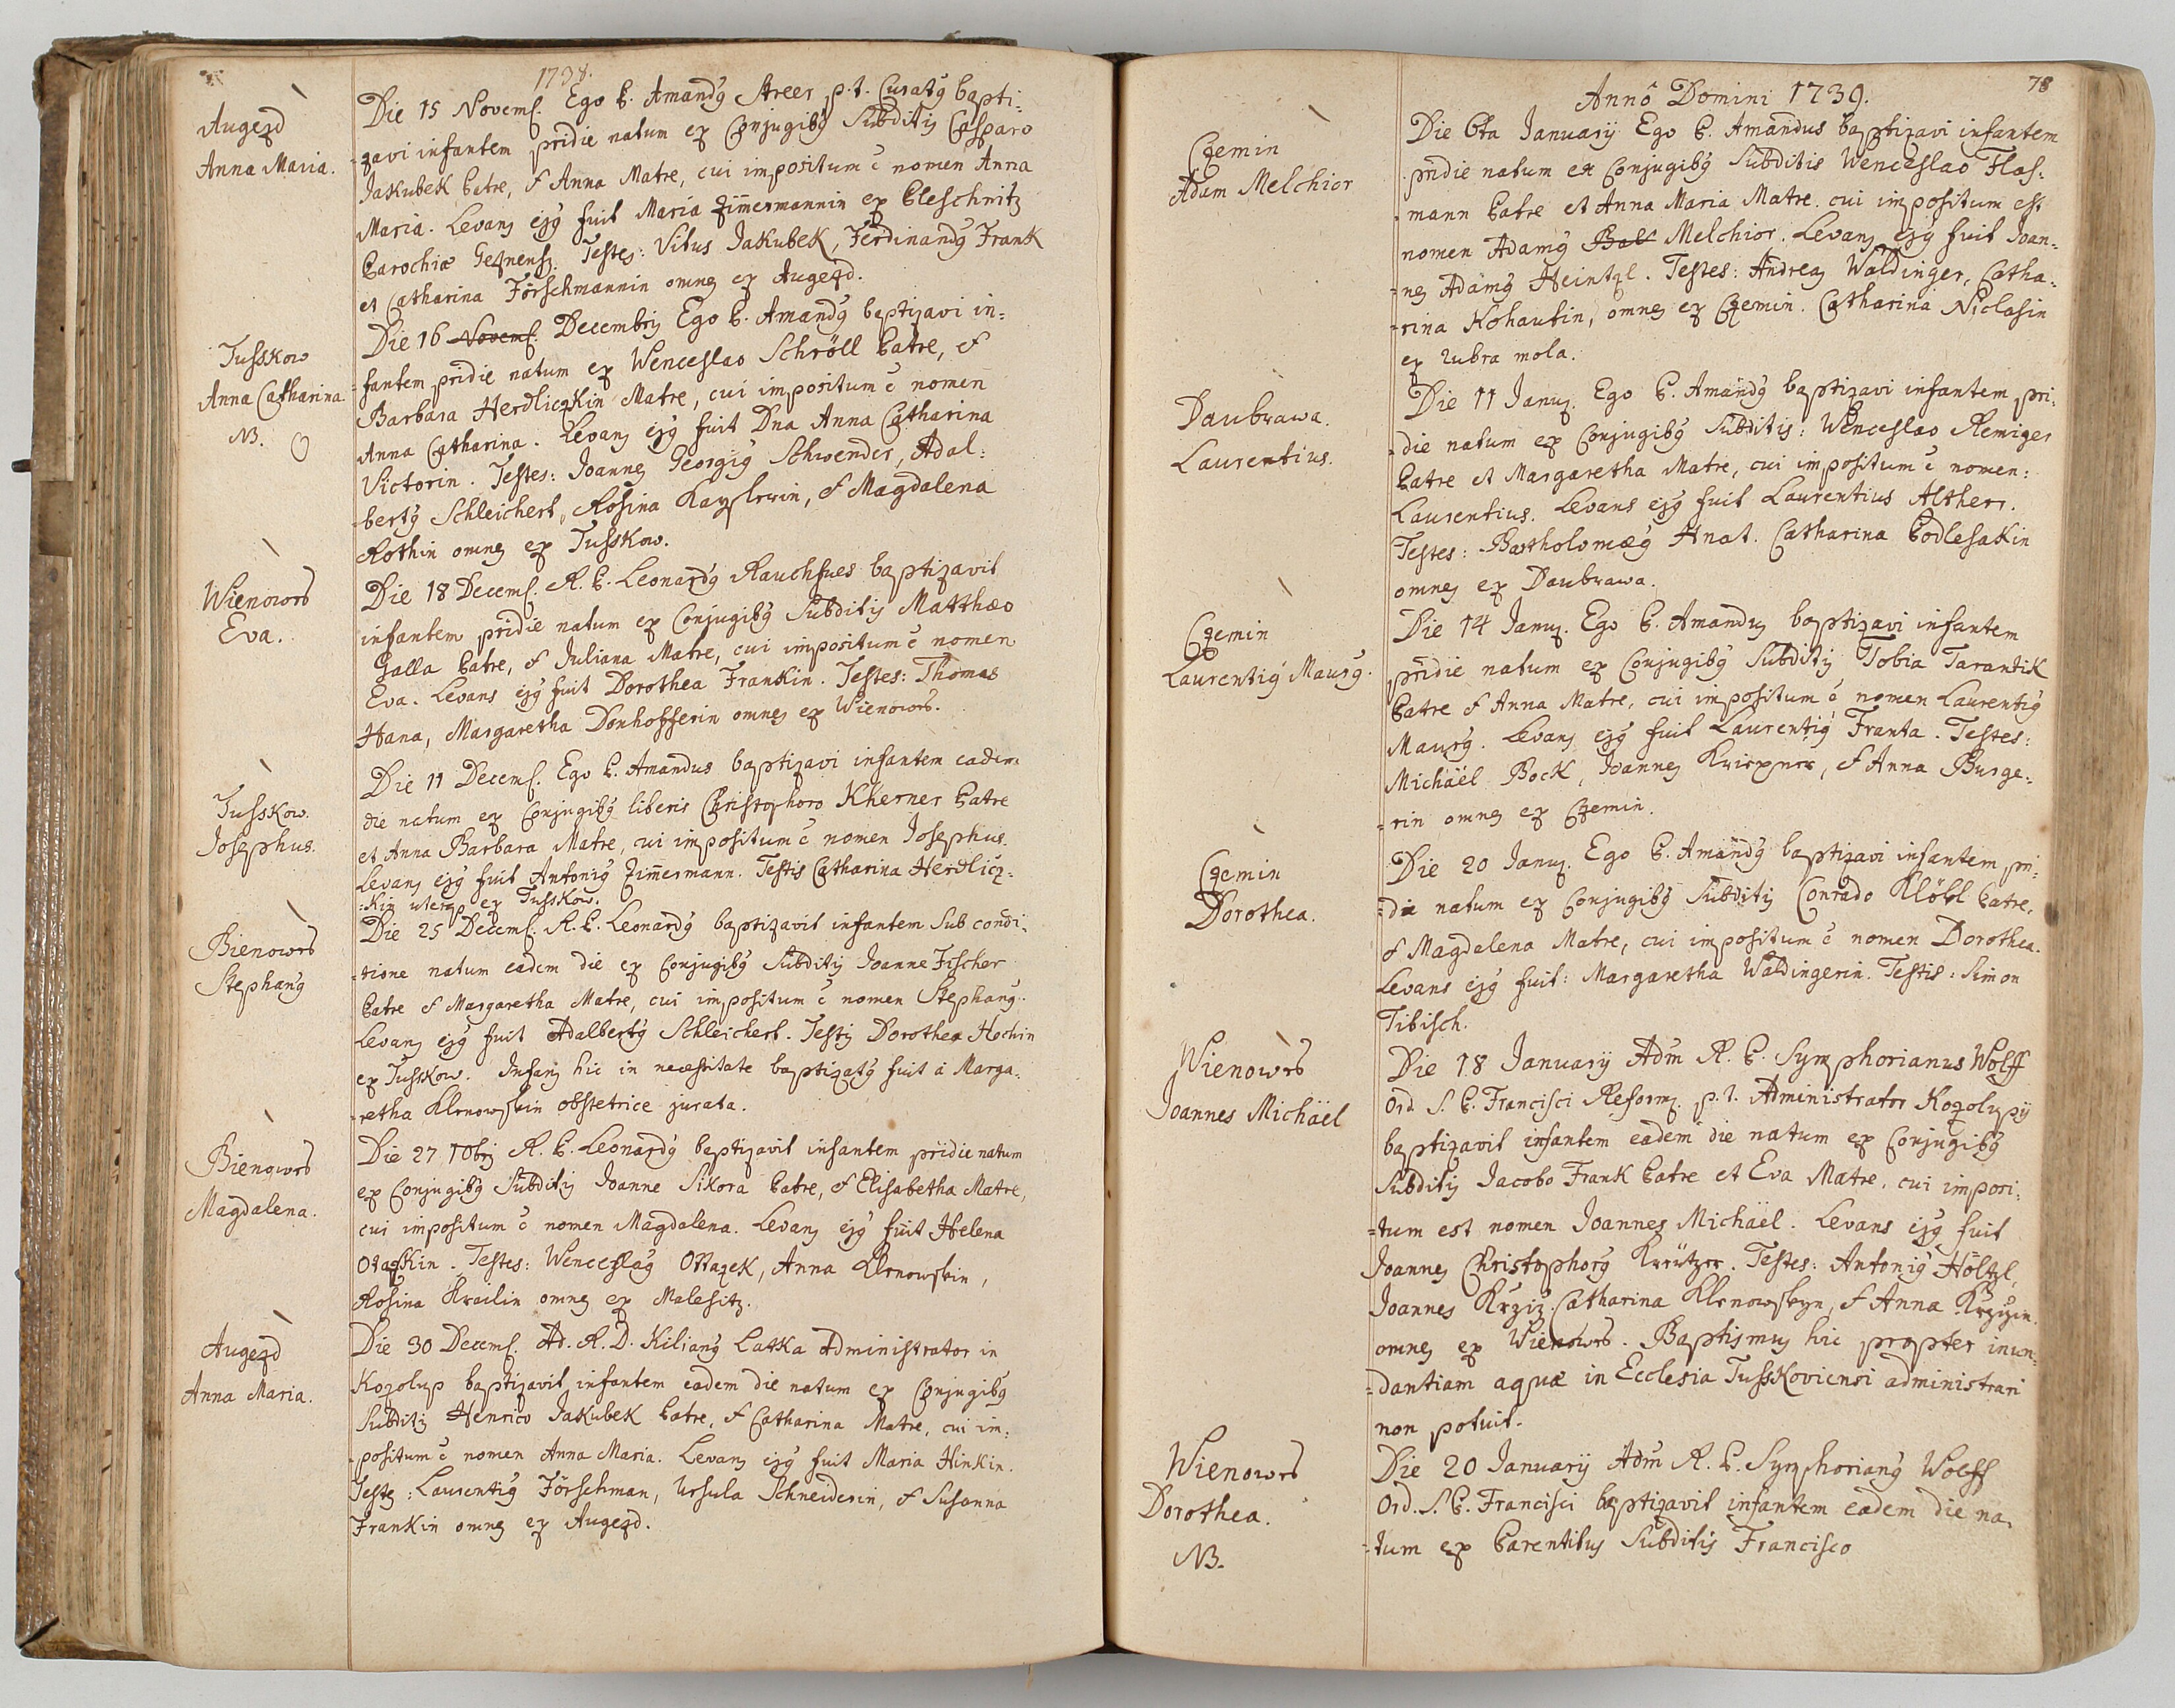 1738.
Augezd
Anna Maria.
Die 15 Novemb. Ego P. Amandg Streer p.t. Curatg bapti:
zavi infantem pridie natum ex Conjugibg Subditis Casparo
Jakubek Patre, et Anna Matre, cui impositum ē nomen Anna
Maria. Levans ejg fuit Maria Zim̄ermannin ex Pleschnitz
Parochiæ Geznensis. Testes: Vitus Jakubek, Ferdinandg Frank
et Catharina Förschmannin omnes ex Augezd.
Tusskow
Anna Catharina
NB.
Die 16 Novemb. Decembris Ego P. Amandg baptizavi in=
fantem pridie natum ex Wenceslao Schröll Patre, et
Barbara Herdliczkin Matre, cui impositum ē nomen
Anna Catharina. Levans ejg fuit Dna Anna Catharina
Victorin. Testes: Joannes Georgig Schwender, Adal:
bertg Schleichert, Rosina Kayslerin, et Magdalena
Rothin omnes ex Tusskow.
Wienowrs
Eva.
Die 18 Decemb. R. P. Leonardg Rauchfues baptizavit
infantem pridie natum ex Conjugibg Subditis Matthæo
Galla Patre, et Juliana Matre, cui impositum ē nomen
Eva. Levans ejg fuit Dorothea Frankin. Testes: Thomas
Hana, Margaretha Donhofferin omnes ex Wienowrs.
Tusskow.
Josephus.
Die 11 Decemb. Ego P. Amandus baptizavi infantem eadem
die natum ex Conjugibg liberis Christophoro Kherner Patre
et Anna Barbara Matre, cui impositum ē nomen Josephus.
Levans ejg fuit Antonig Zim̄ermann. Testis Catharina Herdlicz=
=kin uterq ex Tusskow.
Bienowrs
Stephang
Die 25 Decemb. R. P. Leonardg baptizavit infantem Sub condi:
=tione natum eadem die ex Conjugibg Subditis Joanne Fischer
Patre et Margaretha Matre, cui impositum ē nomen Stephang.
Levans ejg fuit Adalbertg Schleichert. Testis Dorothea Hochin
ex Tusskow. Infans hic in necessitate baptizatg fuit à Marga:
=retha Klenowskin obstetrice jurata.
Bienowrs
Magdalena.
Die 27 10bris R. P. Leonardg baptizavit infantem pridie natum
ex Conjugibg Subditis Joanne Sikora Patre, et Elisabetha Matre,
cui impositum ē nomen Magdalena. Levans ejg fuit Helena
Otazkin. Testes: Wenceslag Ottazek, Anna Klenowskin,
Rosina Krailin omnes ex Malesitz.
Augezd
Anna Maria.
Die 30 Decemb. Ad. R. D. Kiliang Latka Administrator in
Kozolup baptizavit infantem eadem die natum ex Conjugibg
Subditis Henrico Jakubek Patre, et Catharina Matre, cui im:
=positum ē nomen Anna Maria. Levans ejg fuit Maria Hinkin.
Testes: Laurentig Förschman, Ursula Schneiderin, et Susanna
Frankin omnes ex Augezd.
78
Annô Domini 1739.
Czemin
Adam Melchior
Die 6ta January Ego P. Amandus baptizavi infantem
pridie natum ex Conjugibg Subditis Wenceslao Flas:
=mann Patre et Anna Maria Matre. cui impositum est
nomen Adamg Bal Melchior. Levans ejg fuit Joan=
=nes Adamg Heintzl. Testes: Andreas Waldinger, Catha=
=rina Kohautin, omnes ex Czemin. Catharina Niclasin
ex rubra mola.
Daubrawa.
Laurentius.
Die 11 Janua. Ego P. Amandg baptizavi infantem pri:
=die natum ex Conjugibg Subditis: Wenceslao Remiger
Patre et Margaretha Matre, cui impositum ē nomen:
Laurentius. Levans ejg fuit Laurentius Altherr.
Testes: Bartholomæg Hnat. Catharina Podlesakin
omnes ex Daubrawa.
Czemin
Laurentig Maurg.
Die 14 Janua. Ego P. Amandus baptizavi infantem
pridie natum ex Conjugibg Subditis Tobia Tarantik
Patre et Anna Matre, cui impositum ē nomen Laurentig
Maurg. Levans ejg fuit Laurentig Franta. Testes:
Michäel Bock, Joannes Kriepner, et Anna Burge=
=rin omnes ex Czemin.
Czemin
Dorothea.
Die 20 Janua. Ego P. Amandg baptizavi infantem pri:
=die natum ex Conjugibg Subditis Conrado Klöbl Patre,
et Magdalena Matre, cui impositum ē nomen Dorothea.
Levans ejg fuit: Margaretha Waldingerin. Testis: Simon
Tibisch.
Wienowrs
Joannes Michäel
Die 18 January Adm R. P. Symphorianus Wolff
Ord. S. P. Francisci Reform. p.t. Administrator Kozolupij
baptizavit infantem eadem die natum ex Conjugibg
Subditis Jacobo Frank Patre et Eva Matre, cui imposi:
=tum est nomen Joannes Michäel. Levans ejg fuit
Joannes Christophorg Kreützer. Testes: Antonig Höltzl,
Joannes Krziz. Catharina Klenowskyn, et Anna Krzizin
omnes ex Wienowrs. Baptismus hic propter inun=
=dantiam aquæ in Ecclesia Tusskoviensi administrari
non potuit.
Wienowrs
Dorothea.
NB.
Die 20 January Adm R. P. Symphoriang Wolff
Ord. S. P. Francisci baptizavit infantem eadem die na=
=tum ex Parentibus Subditis Francisco